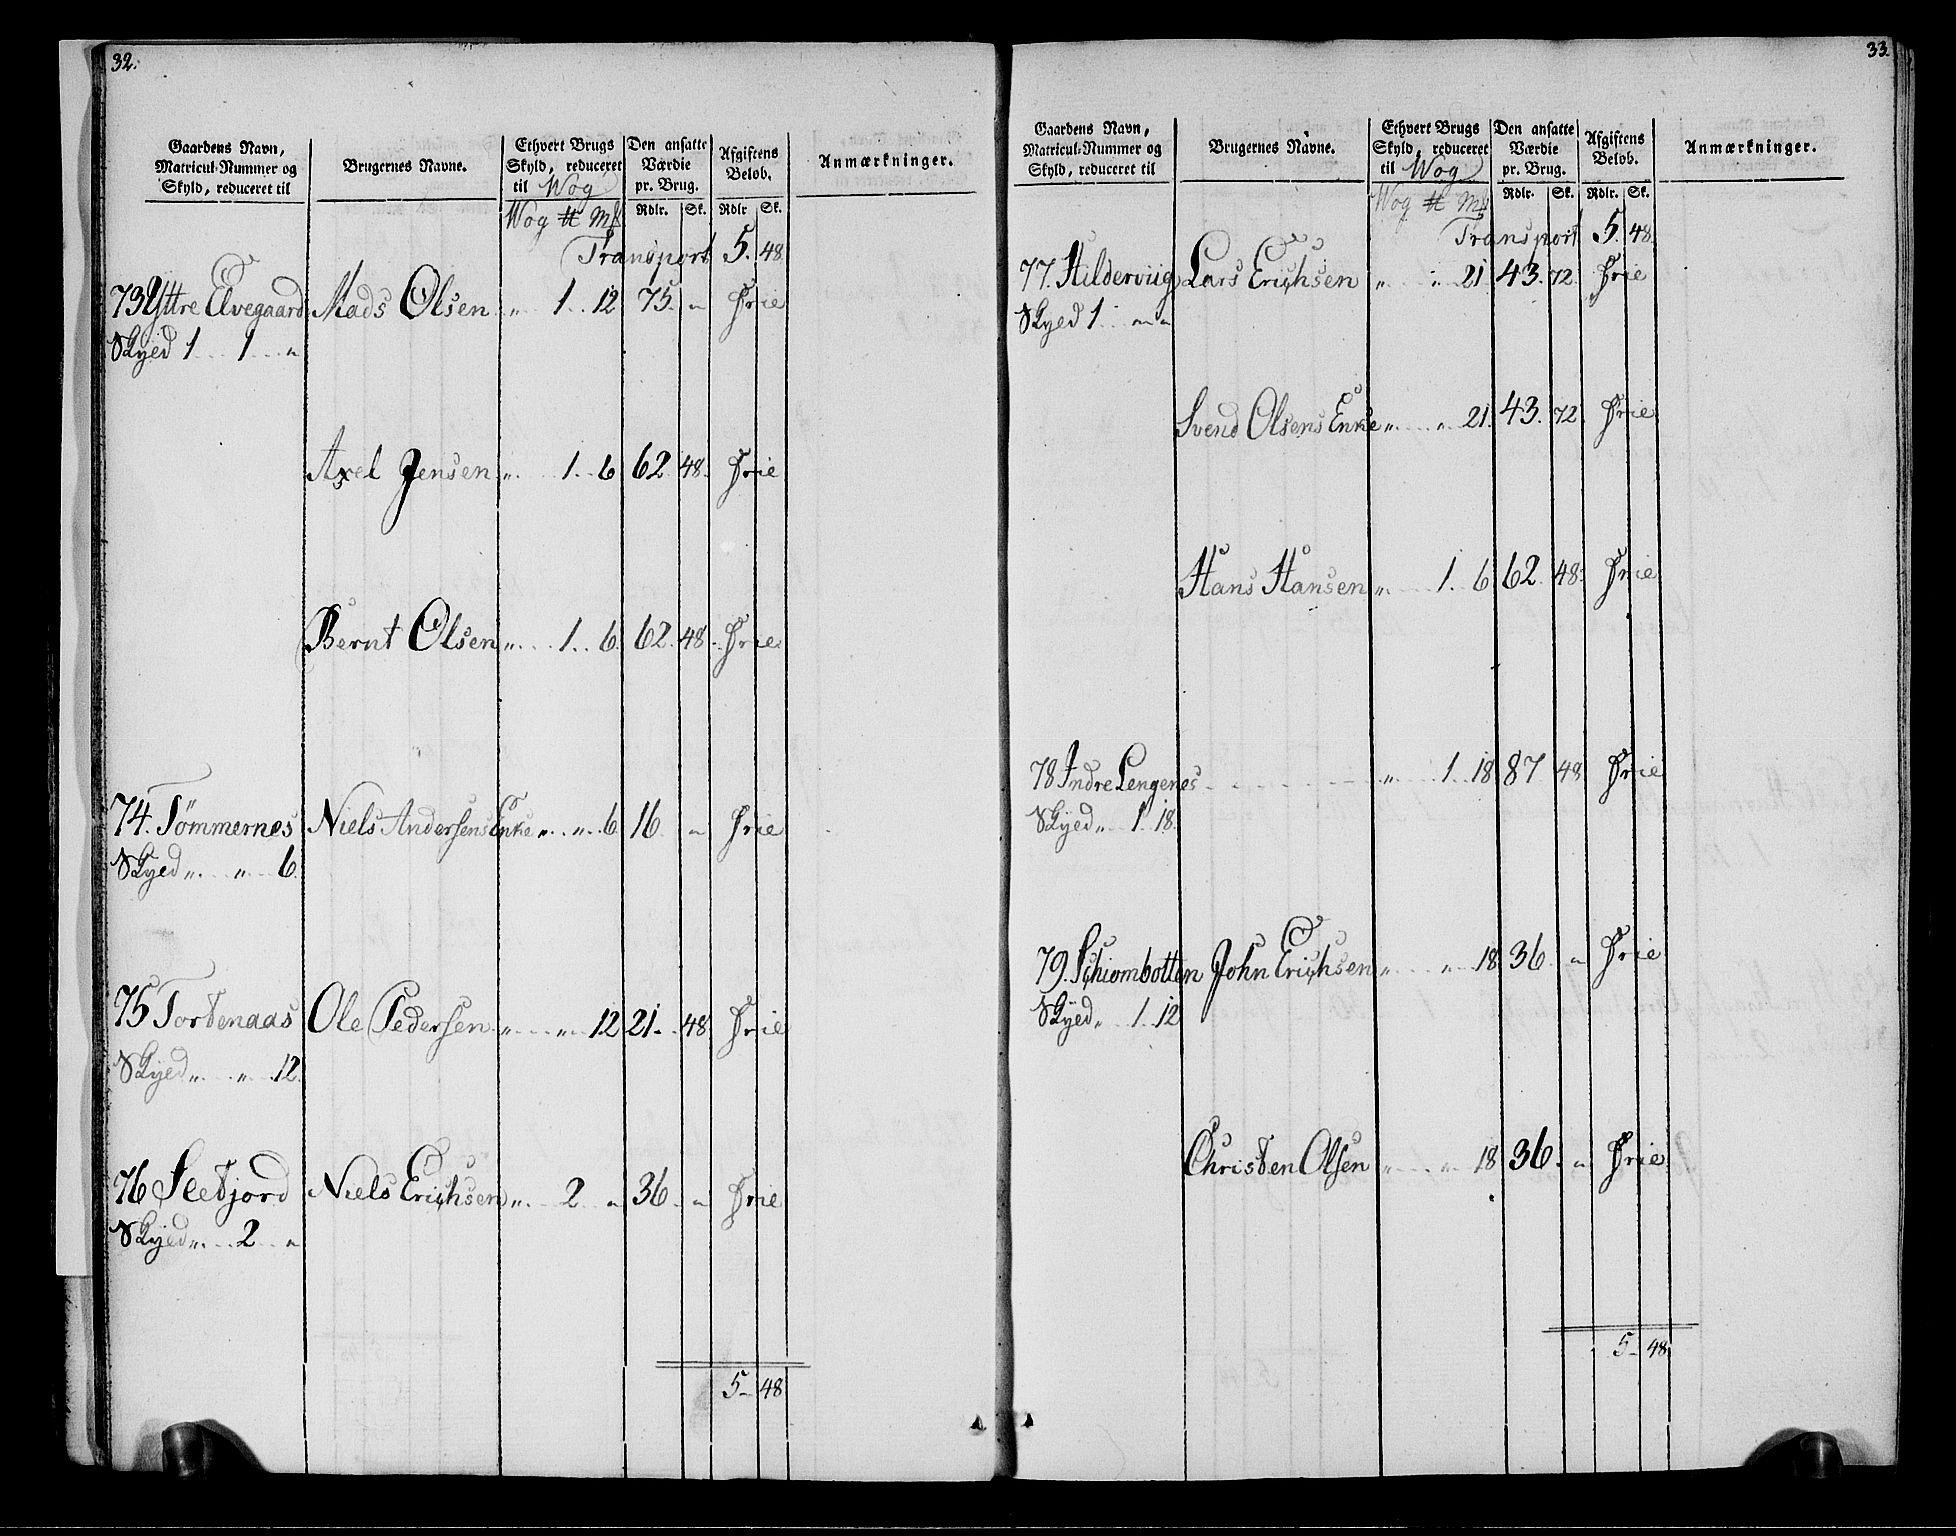 32.
Gaardens Navn, Matricul-Nummer og Skyld, reduceret til
Brugernes Navne.
Ethvert Brugs Skyld, reduceret til Wog
Den ansatte Værdie pr. Brug.
Afgiftens Beløb.
Anmærkninger.
Wog # Mk Rdlr. Sk. Rdlr Sk.
Transport 5. 48
73 Yttre Elvegaard Mads Olsen „ 1 .. 12 75. „ Frie
Skyed 1 .. 1 .. „
Axel Jensen „ . 1 .. 6 62 48. Frie
Bernt Olsen „ . 1 .. 6. 62. 48. Frie
74. Tømmernes Niels Andersens Enke „ .. „ .. 6 16 „ Frie
Skyed „ . „ . 6.
75 Tordenaas Ole Pedersen „ .. „ .. 12 21. 48 Frie
Skyed „ . „ . 12.
76 Sledjord Niels Erichsen „ . 2 „ 36 . „ Frie
Skyed „ . 2 . „
5 – 48
33.
Gaardens Navn, Matricul-Nummer og Skyld, reduceret til
Brugernes Navne.
Ethvert Brugs Skyld, reduceret til Wog
Den ansatte Værdie pr. Brug.
Afgiftens Beløb.
Anmærkninger.
Wog # Mk Rdlr. Sk. Rdlr. Sk.
Transport 5. 48.
77. Hilderviig Lars Erichsen „ „ 21 43. 72. Frie
Skyed 1 .. „ „
Svend Olsens Enke „ .. „ .. 21. 43. 72. Frie
Hans Hansen „ .. 1 .. 6 62. 48. Frie
78 Indre Lengenes „ . 1 .. 18 87 48 Frie
Skyed „ . 1 .. 18.
79. Schiombotten John Erichsen „ . „ .. 18 36 . „ Frie
Skyed „ . 1 .. 12
Christen Olsen „ .. „ .. 18 36 . „ Frie
5 – 48.